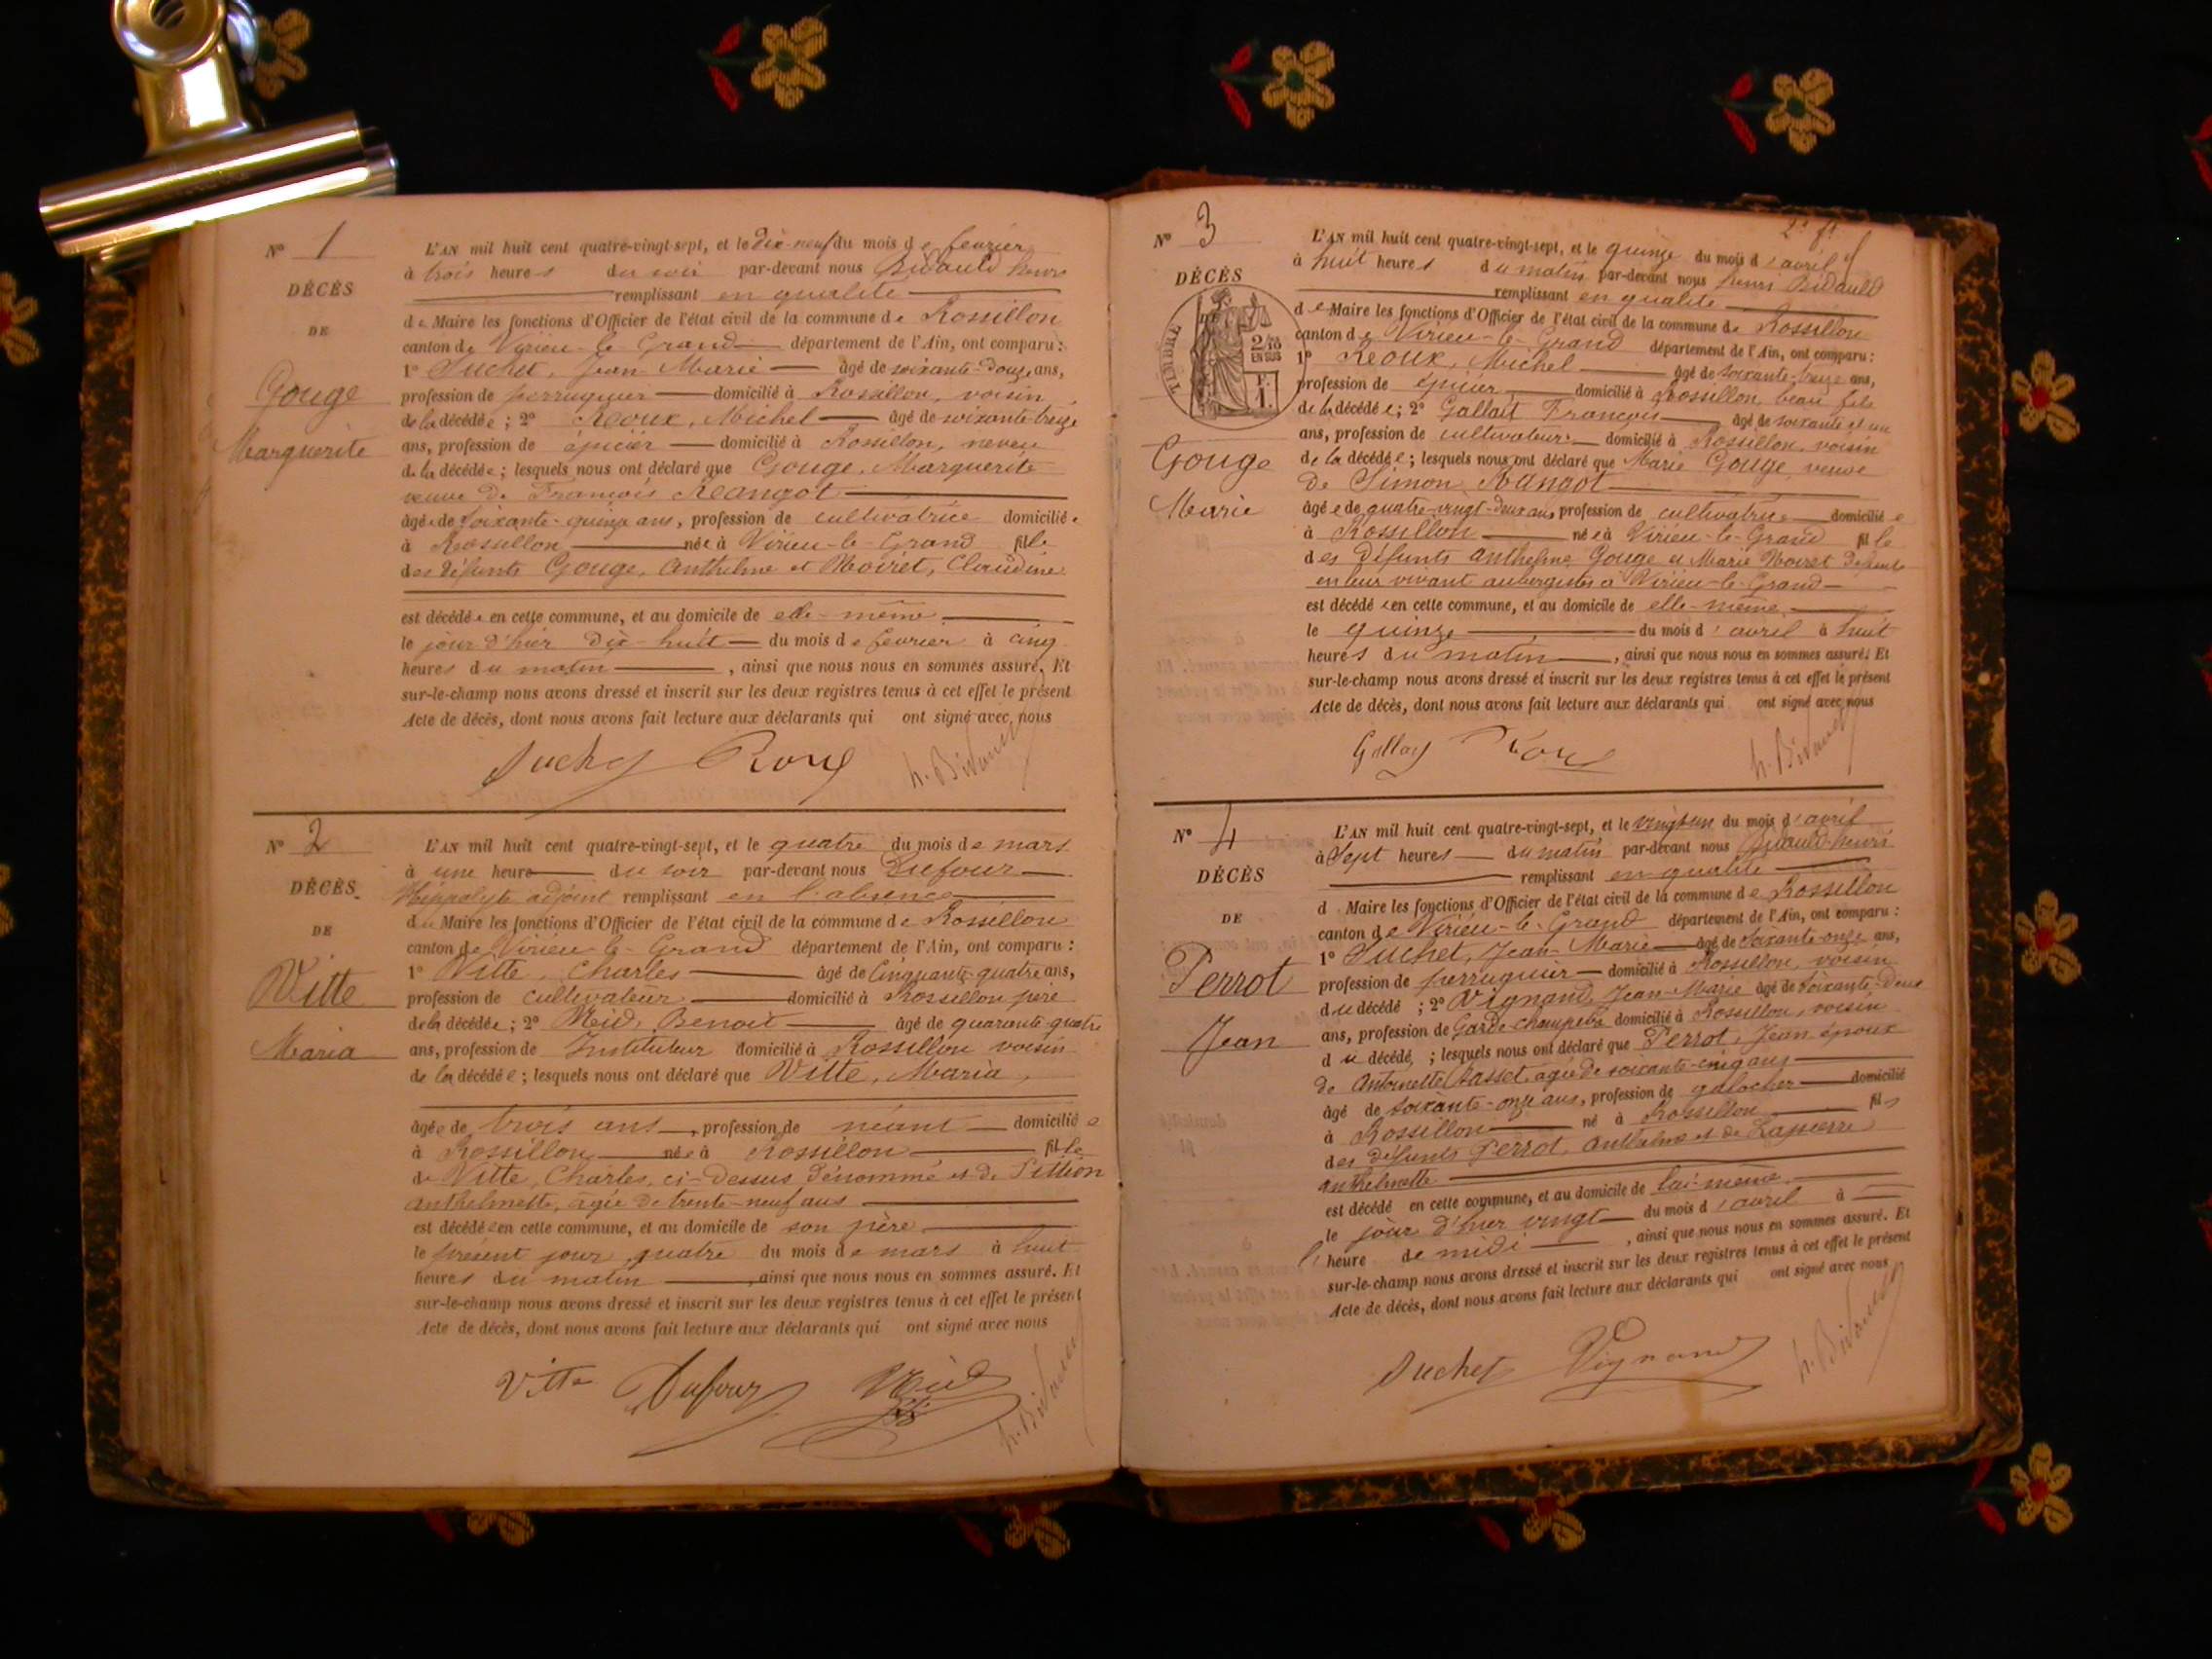 N° 1
DÉCÈS
DE
Gouge
Marguerite
L'AN mil huit cent quatre-vingt-sept, et le dix-neuf du mois de fevrier
à trois heures du soir par-devant nous Bidauld henri
remplissant en qualité
de Maire les fonctions d'Officier de l'état civil de la commune de Rossillon
canton de Virieu-le-Grand département de l'Ain, ont comparu :
1° Suchet, Jean Marie âgé de soixante-douze ans,
profession de perruquier domicilié à Rossillon, voisin
de la décédée ; 2° Roux, Michel âgé de soixante-treize
ans, profession de épicier domicilié à Rossillon, neveu
de la décédée ; lesquels nous ont déclaré que Gouge, Marguerite
veuve de François
âgée de soixante-quinze ans, profession de cultivatrice domiciliée
à Rossillon née à Virieu-le-Grand fille
des défunts Gouge, Anthelme et Moiret, Claudine
est décédée en cette commune, et au domicile de elle-même
le jour d'hier dix-huit du mois de fevrier à cinq
heures du matin, ainsi que nous nous en sommes assuré. Et
sur-le-champ nous avons dressé et inscrit sur les deux registres tenus à cet effet le présent
Acte de décès, dont nous avons fait lecture aux déclarants qui ont signé avec nous
Suchet Roux h. Bidauld
N° 2
DÉCÈS
DE
Vitte
Maria
L'AN mil huit cent quatre-vingt-sept, et le quatre du mois de mars
à une heure du soir par-devant nous Dufour
Hippolyte adjoint remplissant en l'absence
du Maire les fonctions d'Officier de l'état civil de la commune de Rossillon
canton de Virieu le Grand département de l'Ain, ont comparu :
1° Vitte, Charles âgé de Cinquante-quatre ans,
profession de cultivateur domicilié à Rossillon père
de la décédée ; 2° Benoit âgé de quarante-quatre
ans, profession de Instituteur domicilié à Rossillon voisin
de la décédée ; lesquels nous ont déclaré que Vitte, Maria,
âgée de trois ans, profession de néant domiciliée
à Rossillon née à Rossillon fille
de Vitte, Charles, ci-dessus dénommé et de Pithion
anthelmette, agée de trente-neuf ans
est décédée en cette commune, et au domicile de son père
le présent jour, quatre du mois de mars à huit
heures du matin, ainsi que nous nous en sommes assuré. Et
sur-le-champ nous avons dressé et inscrit sur les deux registres tenus à cet effet le présent
Acte de décès, dont nous avons fait lecture aux déclarants qui ont signé avec nous
Vitte Dufour h. Bidauld
N° 3
DÉCÈS
DE
TIMBRE
2/10
EN SUS
Gouge
Marie
L'AN mil huit cent quatre-vingt-sept, et le quinze du mois d'avril
à huit heures du matin par-devant nous henri Bidauld
remplissant en qualité
de Maire les fonctions d'Officier de l'état civil de la commune de Rossillon
canton de Virieu-le-Grand département de l'Ain, ont comparu :
1° Roux, Michel âgé de soixante-treize ans,
profession de épicier domicilié à Rossillon, beau fils
de la décédée ; 2° Gallait François âgé de soixante et un
ans, profession de cultivateur domicilié à Rossillon, voisin
de la décédée ; lesquels nous ont déclaré que Marie Gouge, veuve
de Simon
âgée de quatre-vingt-deux ans, profession de cultivatrice domiciliée
à Rossillon née à Virieu-le-Grand fille
des défunts anthelme Gouge et Marie Moiret défunts
en leur vivant aubergistes à Virieu-le-Grand
est décédée en cette commune, et au domicile de elle-même
le quinze du mois d'avril à huit
heures du matin, ainsi que nous nous en sommes assuré. Et
sur-le-champ nous avons dressé et inscrit sur les deux registres tenus à cet effet le présent
Acte de décès, dont nous avons fait lecture aux déclarants qui ont signé avec nous
Roux h. Bidauld
N° 4
DÉCÈS
DE
Perrot
Jean
L'AN mil huit cent quatre-vingt-sept, et le vingt-un du mois d'avril
à Sept heures du matin par-devant nous Bidauld henri
remplissant en qualité
d Maire les fonctions d'Officier de l'état civil de la commune de Rossillon
canton de Virieu-le-Grand département de l'Ain, ont comparu :
1° Suchet, Jean-Marie âgé de soixante-onze ans,
profession de perruquier domicilié à Rossillon, voisin
du décédé ; 2° Vignand, Jean-Marie âgé de soixante-deux
ans, profession de Garde champêtre domicilié à Rossillon, voisin
du décédé, ; lesquels nous ont déclaré que Perrot, Jean époux
de Antoinette agée de soixante-cinq ans
âgé de soixante-onze ans, profession de galocher domicilié
à Rossillon né à Rossillon fils
des défunts Perrot, anthelme et de Lapierre
anthelmette
est décédé en cette commune, et au domicile de lui-même
le jour d'hier vingt du mois d'avril à
l'heure de midi, ainsi que nous nous en sommes assuré. Et
sur-le-champ nous avons dressé et inscrit sur les deux registres tenus à cet effet le présent
Acte de décès, dont nous avons fait lecture aux déclarants qui ont signé avec nous
Suchet Vignand h. Bidauld